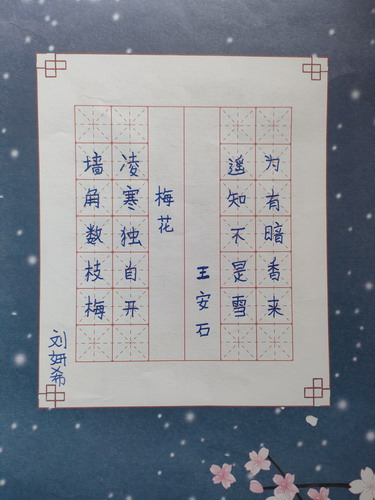 墙角数枝梅
凌寒独自开
梅花
王安石
遥知不是雪
为有暗香来
刘妍希